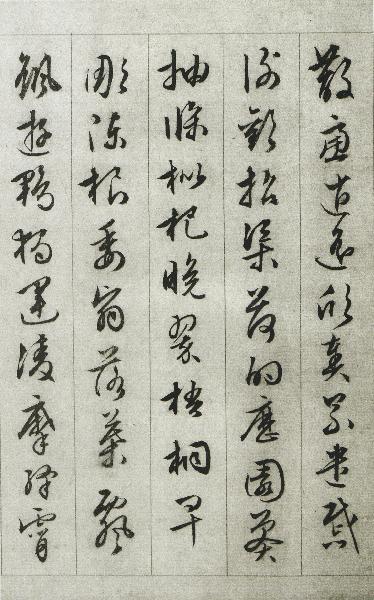 散慮逍遙欣奏累遣慼
謝歡招渠荷的歷園莽
抽條枇杷晚翠梧桐早
彫陳根委翳落葉飄
颻遊鵾獨運淩摩絳霄